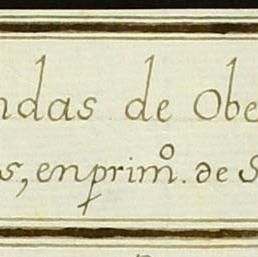 ndas de Obe
s, en primo. de S